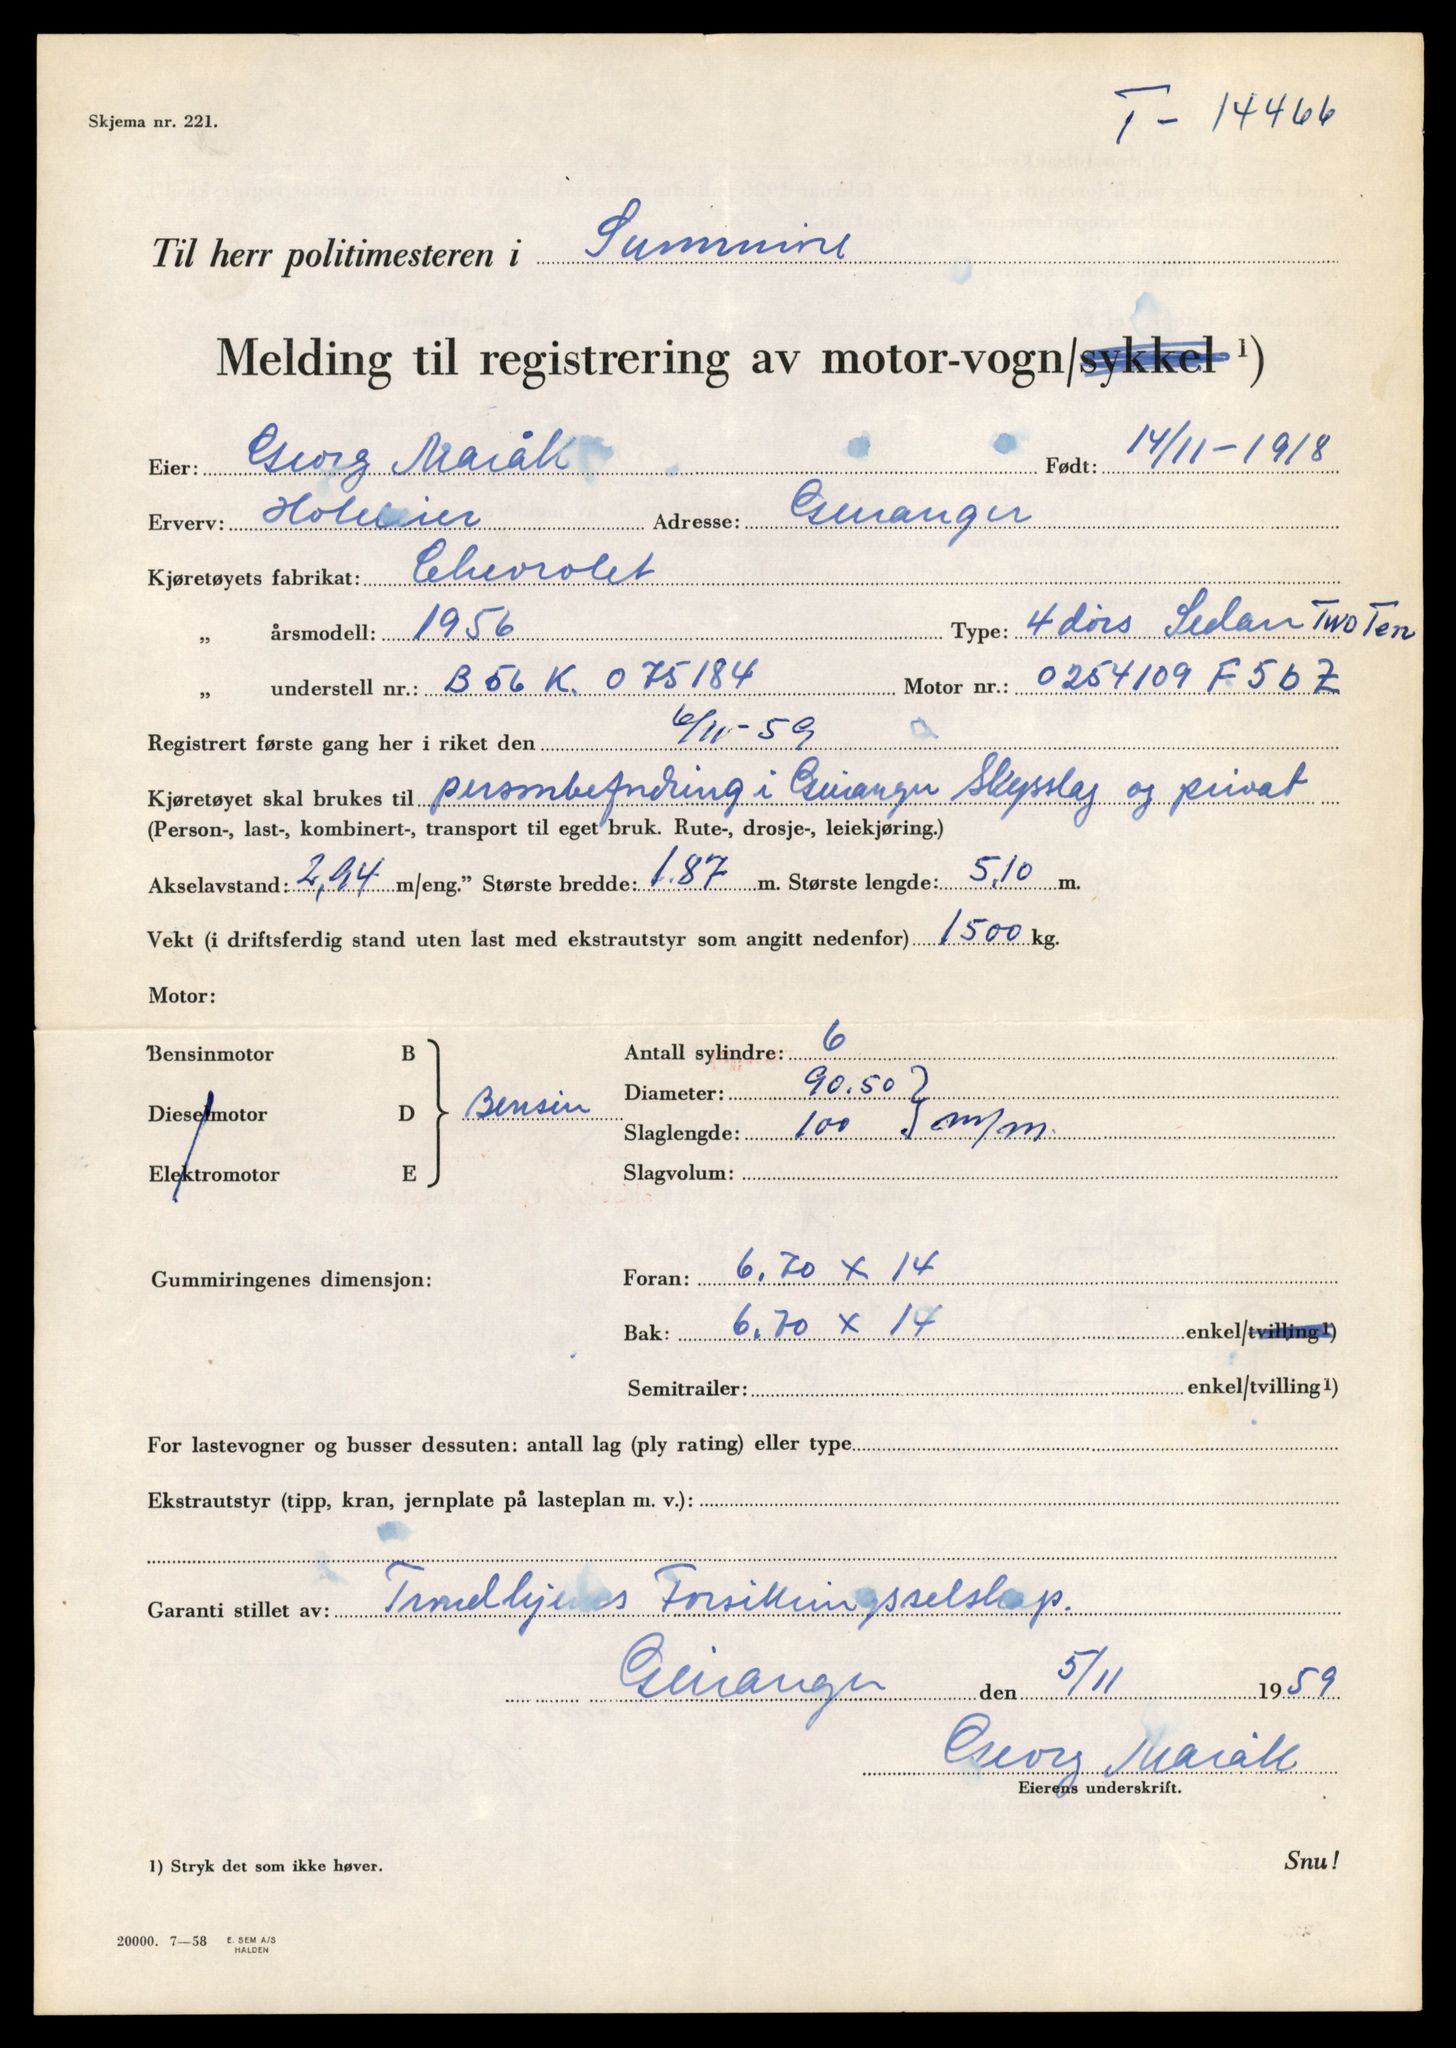 T - 14466
Skjema nr. 221.
Til herr politimesteren i Sunnmøre
Melding til registrering av motor-vogn/sykkel 1)
Eier: Georg Maråk Født: 14/11-1918
Erverv: Hoteleier Adresse: Geiranger
Kjøretøyets fabrikat: Chevrolet
„ årsmodell: 1956 Type: 4 dørs Sedan Two Ten
„ understell nr.: B 56 K. 075184 Motor nr.: 0254109 F 56 Z
Registrert første gang her i riket den 6/11-59
Kjøretøyet skal brukes til personbefordring i Geiranger Skysslag og privat
(Person-, last-, kombinert-, transport til eget bruk. Rute-, drosje-, leiekjøring.)
Akselavstand: 2,94 m/eng.” Største bredde: 1.87 m. Største lengde: 5,10 m.
Vekt (i driftsferdig stand uten last med ekstrautstyr som angitt nedenfor) 1500 kg.
Motor:
Bensinmotor B
Dieselmotor D
Elektromotor E
Bensin
Antall sylindre: 6
Diameter: 90.50
Slaglengde: 100 m/m.
Slagvolum:
Gummiringenes dimensjon: Foran: 6.70 x 14
Bak: 6.70 x 14 enkel/tvilling 1)
Semitrailer: enkel/tvilling 1)
For lastevogner og busser dessuten: antall lag (ply rating) eller type
Ekstrautstyr (tipp, kran, jernplate på lasteplan m. v.):
Garanti stillet av: Trondhjems Forsikringsselskap.
Geiranger den 5/11 1959
Georg Maråk
Eierens underskrift.
1) Stryk det som ikke høver. Snu!
20000. 7—58 E. SEM A/S
HALDEN